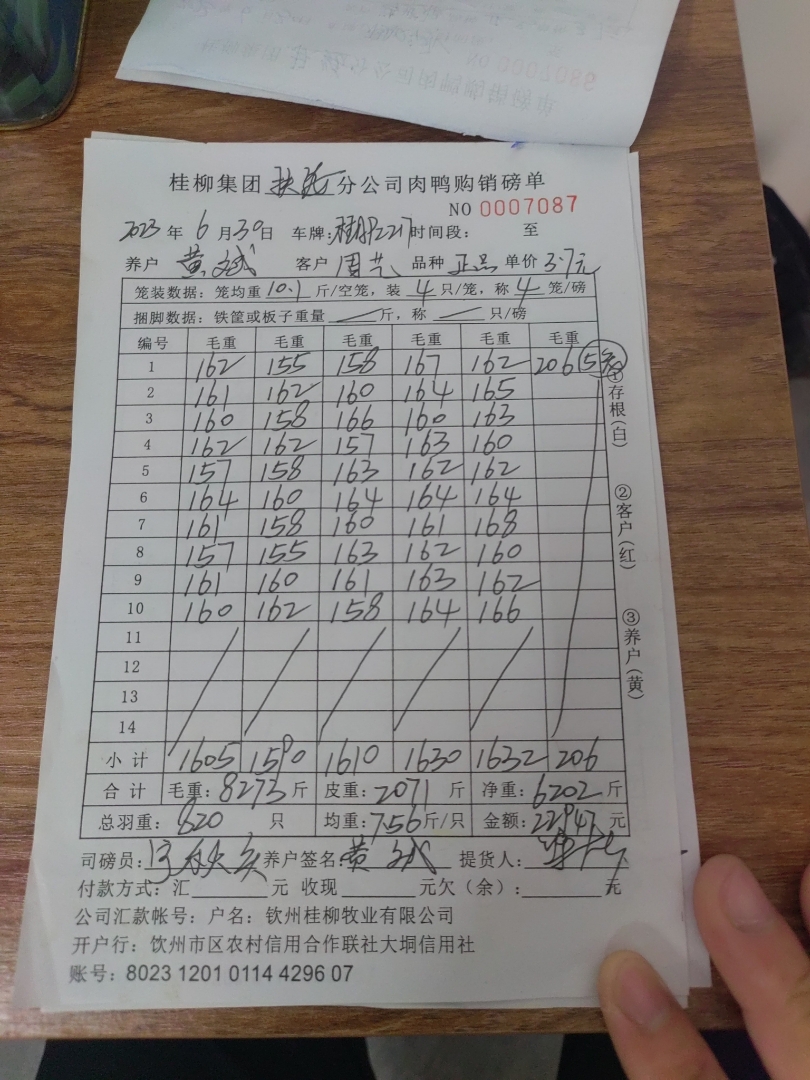 桂柳集团 分公司肉鸭购销磅单
NO 0007087
2023 年 6 月 30 日 车牌: 时间段: 至
养户 黄斌 客户 周艺 品种 正品 单价 3.7元
笼装数据：笼均重 10.1 斤/空笼，装 4 只/笼，称 4 笼/磅
捆脚数据：铁筐或板子重量 斤，称 只/磅
编号 毛重 毛重 毛重 毛重 毛重 毛重
1 162 155 158 167 162 206
2 161 162 160 164 165
3 160 158 166 160 163
4 162 162 157 163 160
5 157 158 163 162 162
6 164 160 164 164 164
7 161 158 160 161 168
8 157 155 163 162 160
9 161 160 161 163 162
10 160 162 158 164 166
11
12
13
14
小计 1605 1590 1610 1630 1632 206
合计 毛重: 8273 斤 皮重: 2071 斤 净重: 6202 斤
总羽重: 820 只 均重: 7.56 斤/只 金额: 22947 元
司磅员: 养户签名: 黄斌 提货人:
付款方式: 汇 元 收现 元欠（余）: 元
公司汇款帐号：户名：钦州桂柳牧业有限公司
开户行：钦州市区农村信用合作联社大垌信用社
账号：8023 1201 0114 4296 07
①存根(白)
②客户(红)
③养户(黄)